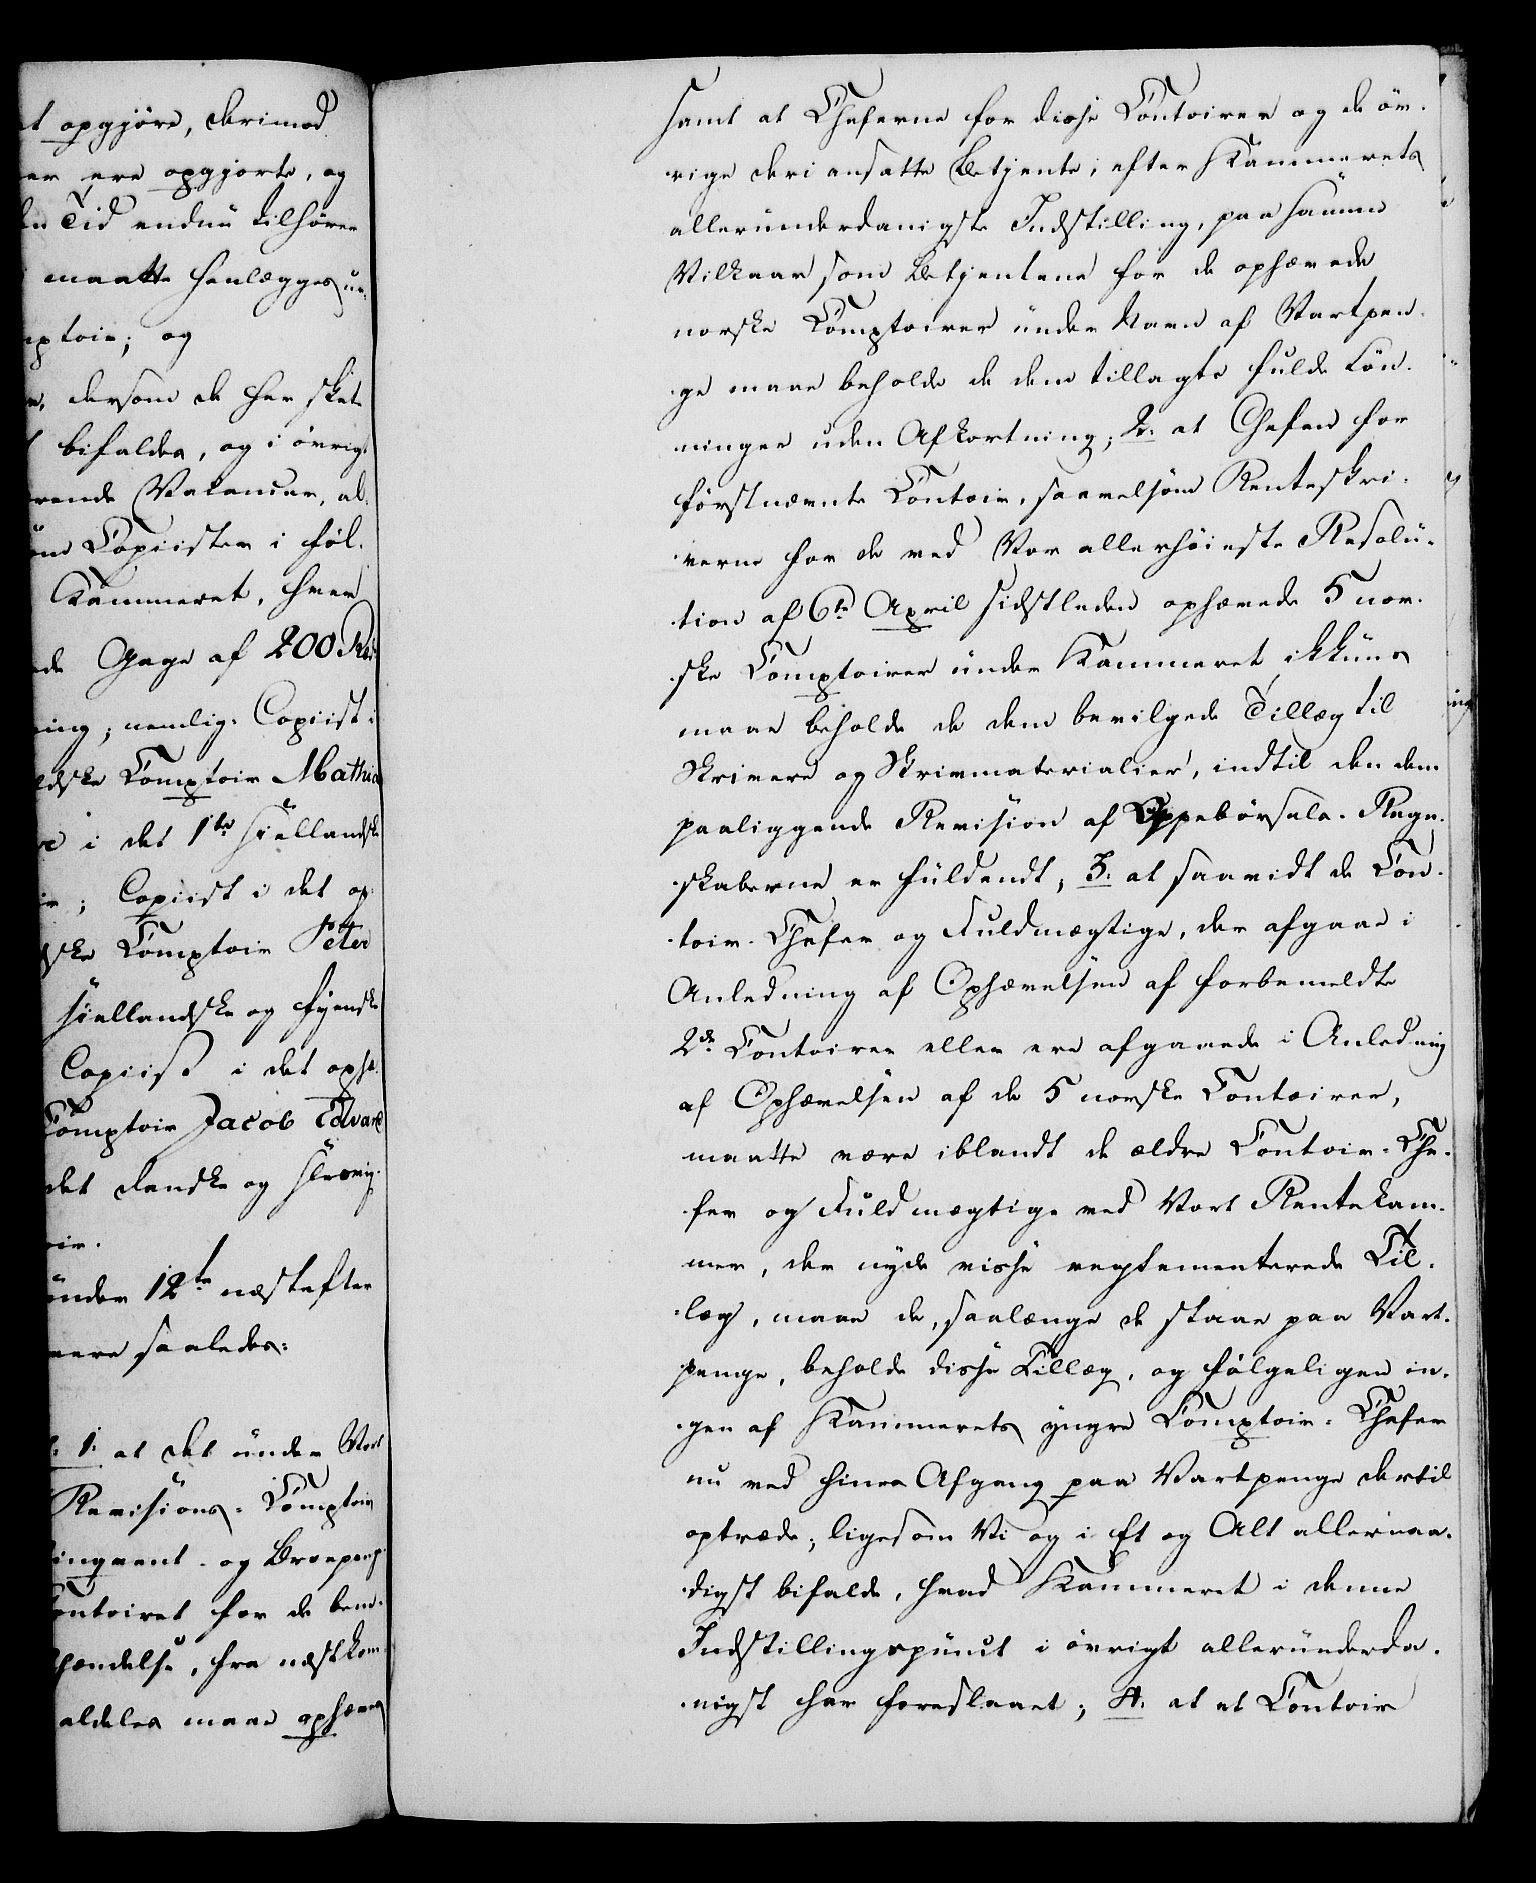 t opgjöre, derimod
er ere opgjorte, og
en Tid endnu tilhører
maatte henlægges un¬
mptoir; og
r, dersom de her skete
t bifaldes, og i övrigt
rende Vacancer, al¬
om Copiister i föl¬
Kammeret, hver
de Gage af 200 Rd
ning, nemlig: Copiist i
dske Comptoir Mathia
re i det 1te siellandske
ir; Copiist i det op¬
dske Comptoir Peter
siellandske og fyenske
Copiist i det ophæ¬
Comptoir Jacob Edvard
det danske og slesvig¬
oir.
under 12te næstefter
mere saaledes:
1. at det under Vort
Revisions-Comptoir
og Broepenge
Contoiret for de ben¬
hændelse, fra næstkom
aldeles maae ophæves
samt at Cheferne for disse Contoirer og de öv¬
rige deri ansatte Betjente, efter Kammerets
allerunderdanigste Indstilling, paa samme
Vilkaar som Betjentene for de ophævede
norske Comptoirer under Navn af Vartpen¬
ge maae beholde de dem tillagte fulde Løn¬
ninger uden Afkortning; 2. at Chefen for
förstnævnte Contoir, saavelsom Renteskri¬
verne for de ved Vor allerhöieste Resolu¬
tion af 6te April sidstleden ophævede 5 nor¬
ske Comptoirer under Kammeret ikkuns
maae beholde de dem bevilgede Tillæg til
Skrivere og Skrivmaterialier, indtil den dem
paaliggende Revision af Oppebörsels-Regn¬
skaberne er fuldendt; 3. at saavidt de Con¬
toir-Chefer og Fuldmægtige, der afgaae i
Anledning af Ophævelsen af forbemeldte
2de Contoirer eller ere afgaaede i Anledning
af Ophævelsen af de 5 norske Contoirer,
maatte være iblandt de ældre Contoir-Che¬
fer og Fuldmægtige ved Vort Rentekam¬
mer, der nyde visse reglementerede Til¬
læg, maae de, saalænge de staae paa Vart¬
penge, beholde disse Tillæg, og fölgeligen in¬
gen af Kammerets yngre Comptoir-Chefer
nu ved hines Afgang paa Vartpenge dertil
optræde, ligesom Vi og i Et og Alt allernaa¬
digst bifalde, hvad Kammeret i denne
Indstillingspunct i övrigt allerunderda¬
nigst har foreslaaet; 4. at et Contoir